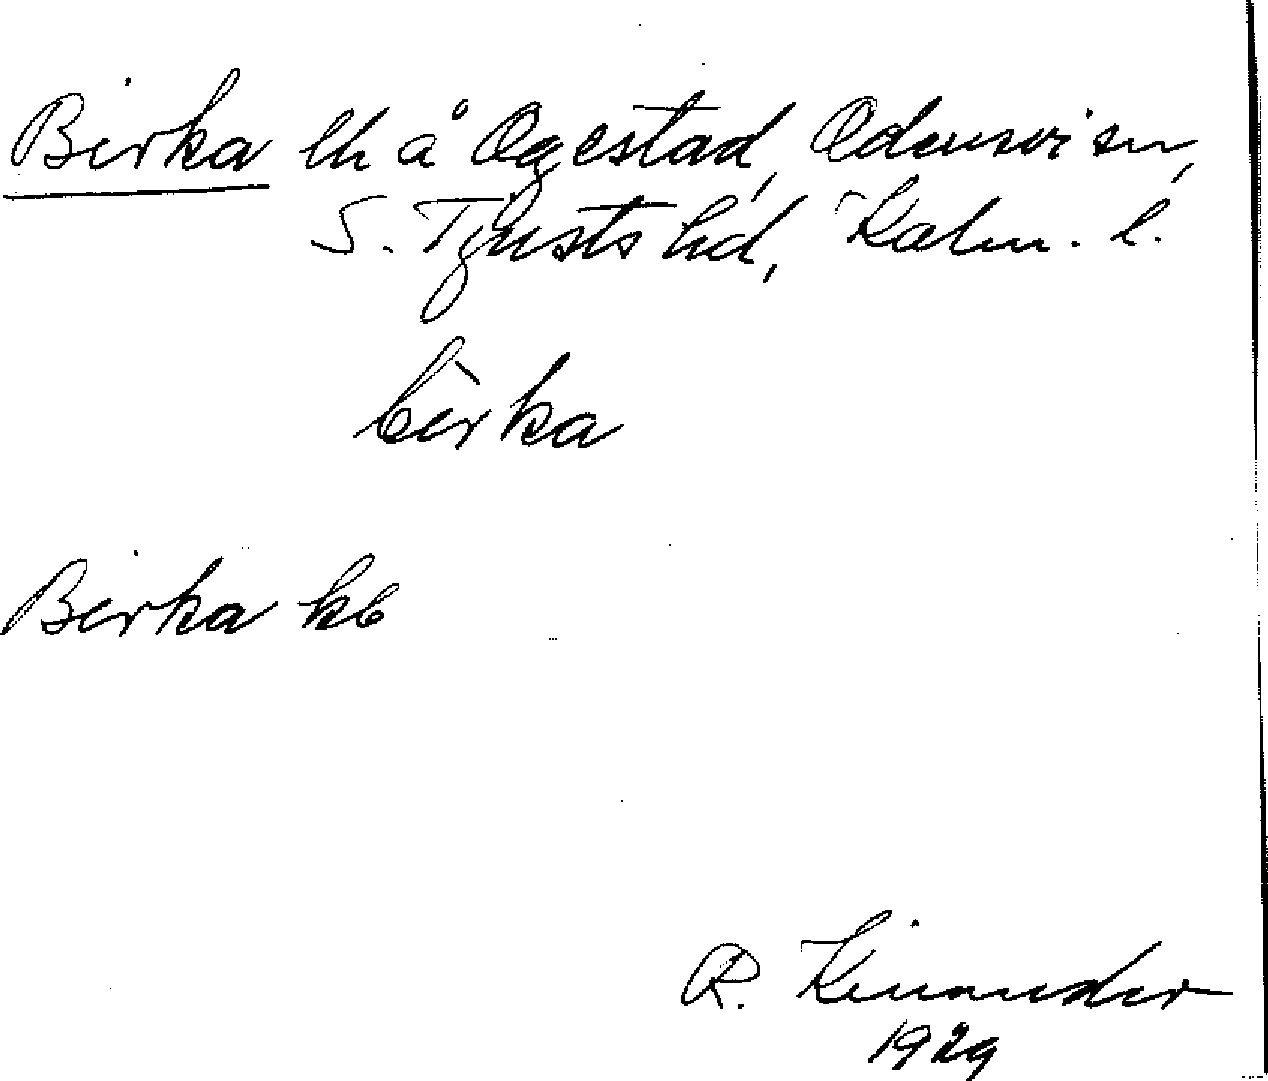 Birka lh å Ogestad, Odensvi sn,
S. Tjusts hd, Kalm. l.
bìrka
Birka kb
R. Kinander
1929